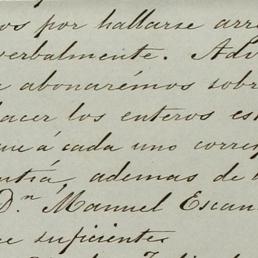 os por hallarse arre
verbalmente. Adv
e abonarémos sobre
hacer los enteros es
que á cada uno corres
antía, ademas de
D.ⁿ Manuel Escan
ce suficientes